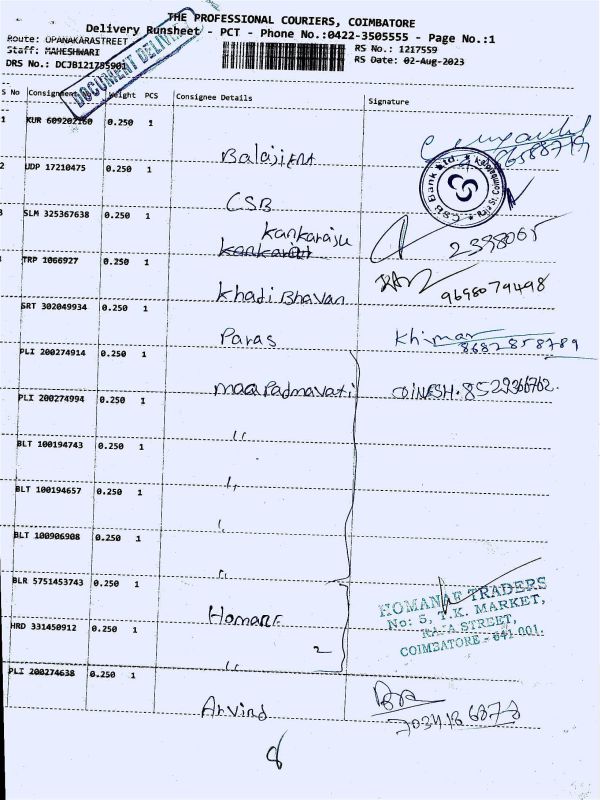 THE PROFESSIONAL COURIERS, COIMBATORE
Delivery Runsheet - PCT - Phone No.:0422-3505555 - Page No.:1
Route: OPANAKARASTREET
Staff: MAHESHWARI
RS No.: 1217559
RS Date: 02-Aug-2023
DRS No.:
DOCUMENT DELIVERY
S No Consignment Weight PCS Consignee Details Signature
1 KUR 609202160 0.250 1
Balaji
2 UDP 17210475 0.250 1
CSB
CSB Bank Ltd.
3 SLM 325367638 0.250 1
Kankaraju
TRP 1066927 0.250 1
Khadi Bhavan
9698079498
SRT 302049934 0.250 1
Paras
Khimar
8682858789
PLI 200274914 0.250 1
maa Padmavati
DINESH. 8522366762.
PLI 200274994 0.250 1
"
BLT 100194743 0.250 1
"
BLT 100194657 0.250 1
"
BLT 100906908 0.250 1
"
BLR 5751453743 0.250 1
Homane
HOMANAE TRADERS
No: 5, T.K. MARKET,
RAJA STREET,
COIMBATORE - 641 001.
HRD 331450912 0.250 1
2
"
PLI 200274638 0.250 1
Arvind
8